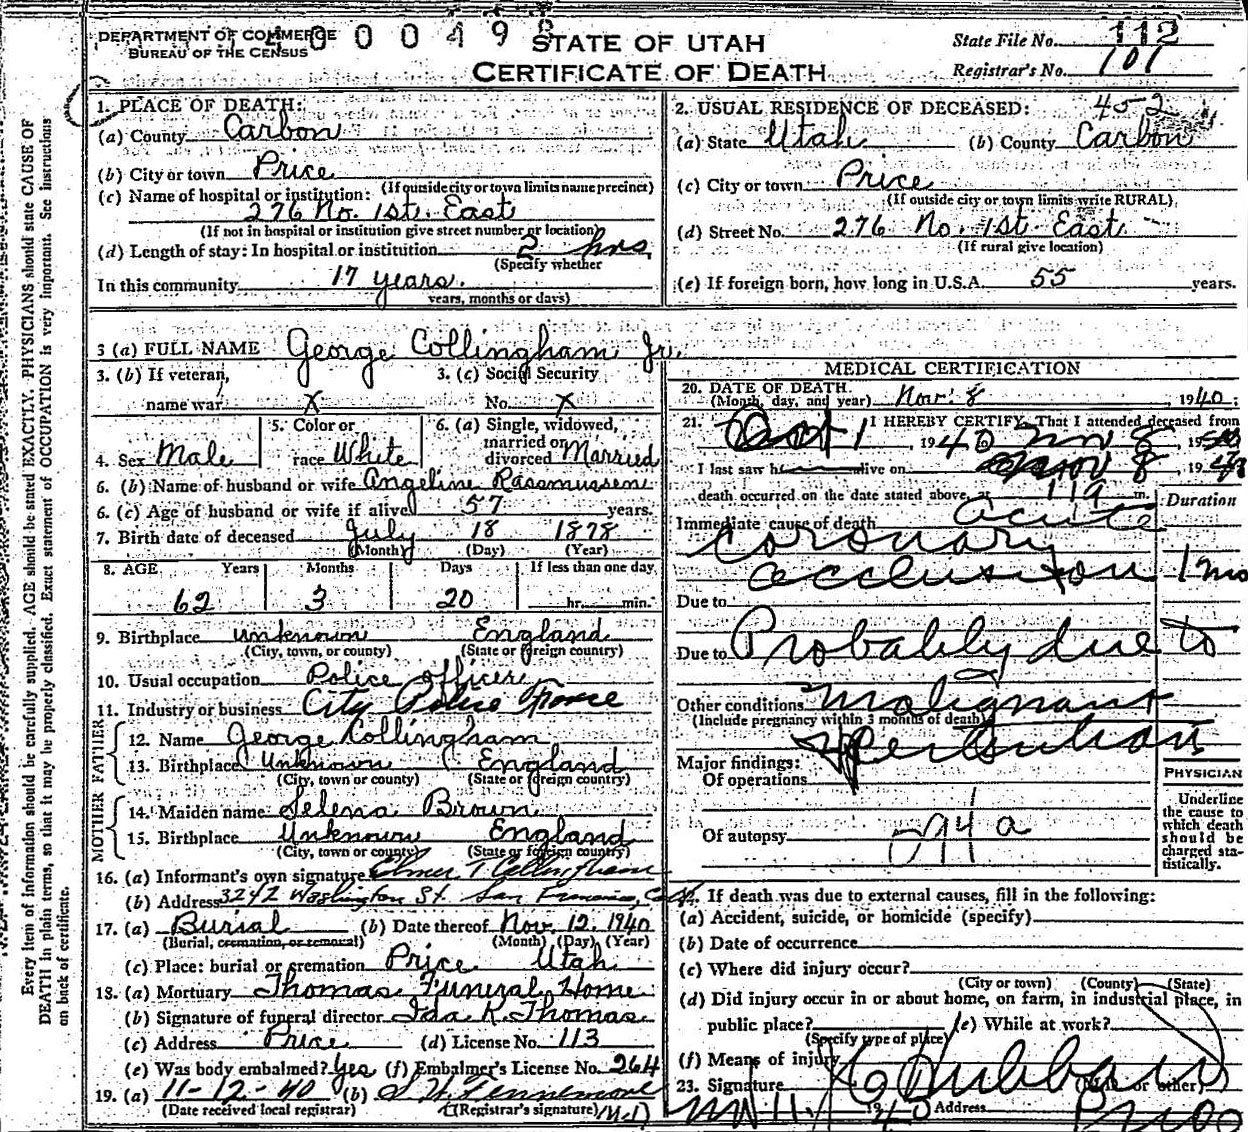 DEPARTMENT OF COMMERCE
BUREAU OF THE CENSUS
000498
STATE OF UTAH
CERTIFICATE OF DEATH
State File No. 112
Registrar's No. 101
Every item of information should be carefully supplied. AGE should be stated EXACTLY. PHYSICIANS should state CAUSE OF
DEATH in plain terms, so that it may be properly classified. Exact statement of OCCUPATION is very important. See instructions
on back of certificate.
1. PLACE OF DEATH:
(a) County Carbon
(b) City or town Price
(If outside city or town limits name precinct)
(c) Name of hospital or institution:
276 No. 1st. East
(If not in hospital or institution give street number or location)
(d) Length of stay: In hospital or institution 2 hrs
(Specify whether
In this community 17 years.
years, months or days)
2. USUAL RESIDENCE OF DECEASED: 452
(a) State Utah (b) County Carbon
(c) City or town: Price
(If outside city or town limits write RURAL)
(d) Street No. 276 No. 1st. East
(If rural give location)
(e) If foreign born, how long in U.S.A. 55 years.
3 (a) FULL NAME George Collingham Jr.
3. (b) If veteran,
name war X
3. (c) Social Security
No. X
4. Sex Male
5. Color or
race White
6. (a) Single, widowed,
married or
divorced Married
6. (b) Name of husband or wife Angeline Rassmussen
6. (c) Age of husband or wife if alive 57 years.
7. Birth date of deceased July 18 1878
(Month) (Day) (Year)
8. AGE Years Months Days If less than one day
62 3 20 hr. min.
9. Birthplace unknown England
(City, town, or county) (State or foreign country)
10. Usual occupation Police officer
11. Industry or business City Police Force
FATHER
12. Name George Collingham
13. Birthplace Unknown England
(City, town or county) (State or foreign country)
MOTHER
14. Maiden name Selena Brown
15. Birthplace Unknown England
(City, town or county) (State or foreign country)
16. (a) Informant's own signature Elmer Collingham
(b) Address 3242 Washington St. San Francisco, Cal
17. (a) Burial (b) Date thereof Nov. 12. 1940
(Burial, cremation, or removal) (Month) (Day) (Year)
(c) Place: burial or cremation Price Utah
18. (a) Mortuary Thomas Funeral Home
(b) Signature of funeral director Ida K. Thomas
(c) Address Price (d) License No. 113
(e) Was body embalmed? Yes (f) Embalmer's License No. 264
19. (a) 11-12-40 (b)
(Date received local registrar) (Registrar's signature) M.D
MEDICAL CERTIFICATION
20. DATE OF DEATH
(Month, day, and year) Nov. 8, 1940;
21. I HEREBY CERTIFY, That I attended deceased from
Oct 1 1940 Nov 8, 19
I last saw h alive on Nov 8, 19
death occurred on the date stated above, at 11 a m.
Duration
Immediate cause of death acute
coronary
occlusion 1 mo
Due to
Due to Probably due to
Other conditions malignant
(Include pregnancy within 3 months of death)
Hypertension
Major findings:
Of operations
Of autopsy 94a
PHYSICIAN
Underline
the cause to
which death
should be
charged sta-
tistically.
22. If death was due to external causes, fill in the following:
(a) Accident, suicide, or homicide (specify)
(b) Date of occurrence
(c) Where did injury occur?
(City or town) (County) (State)
(d) Did injury occur in or about home, on farm, in industrial place, in
public place? (e) While at work?
(Specify type of place)
(f) Means of injury
23. Signature Hubbard (M.D. or other)
Nov 11, 1940 Address Price